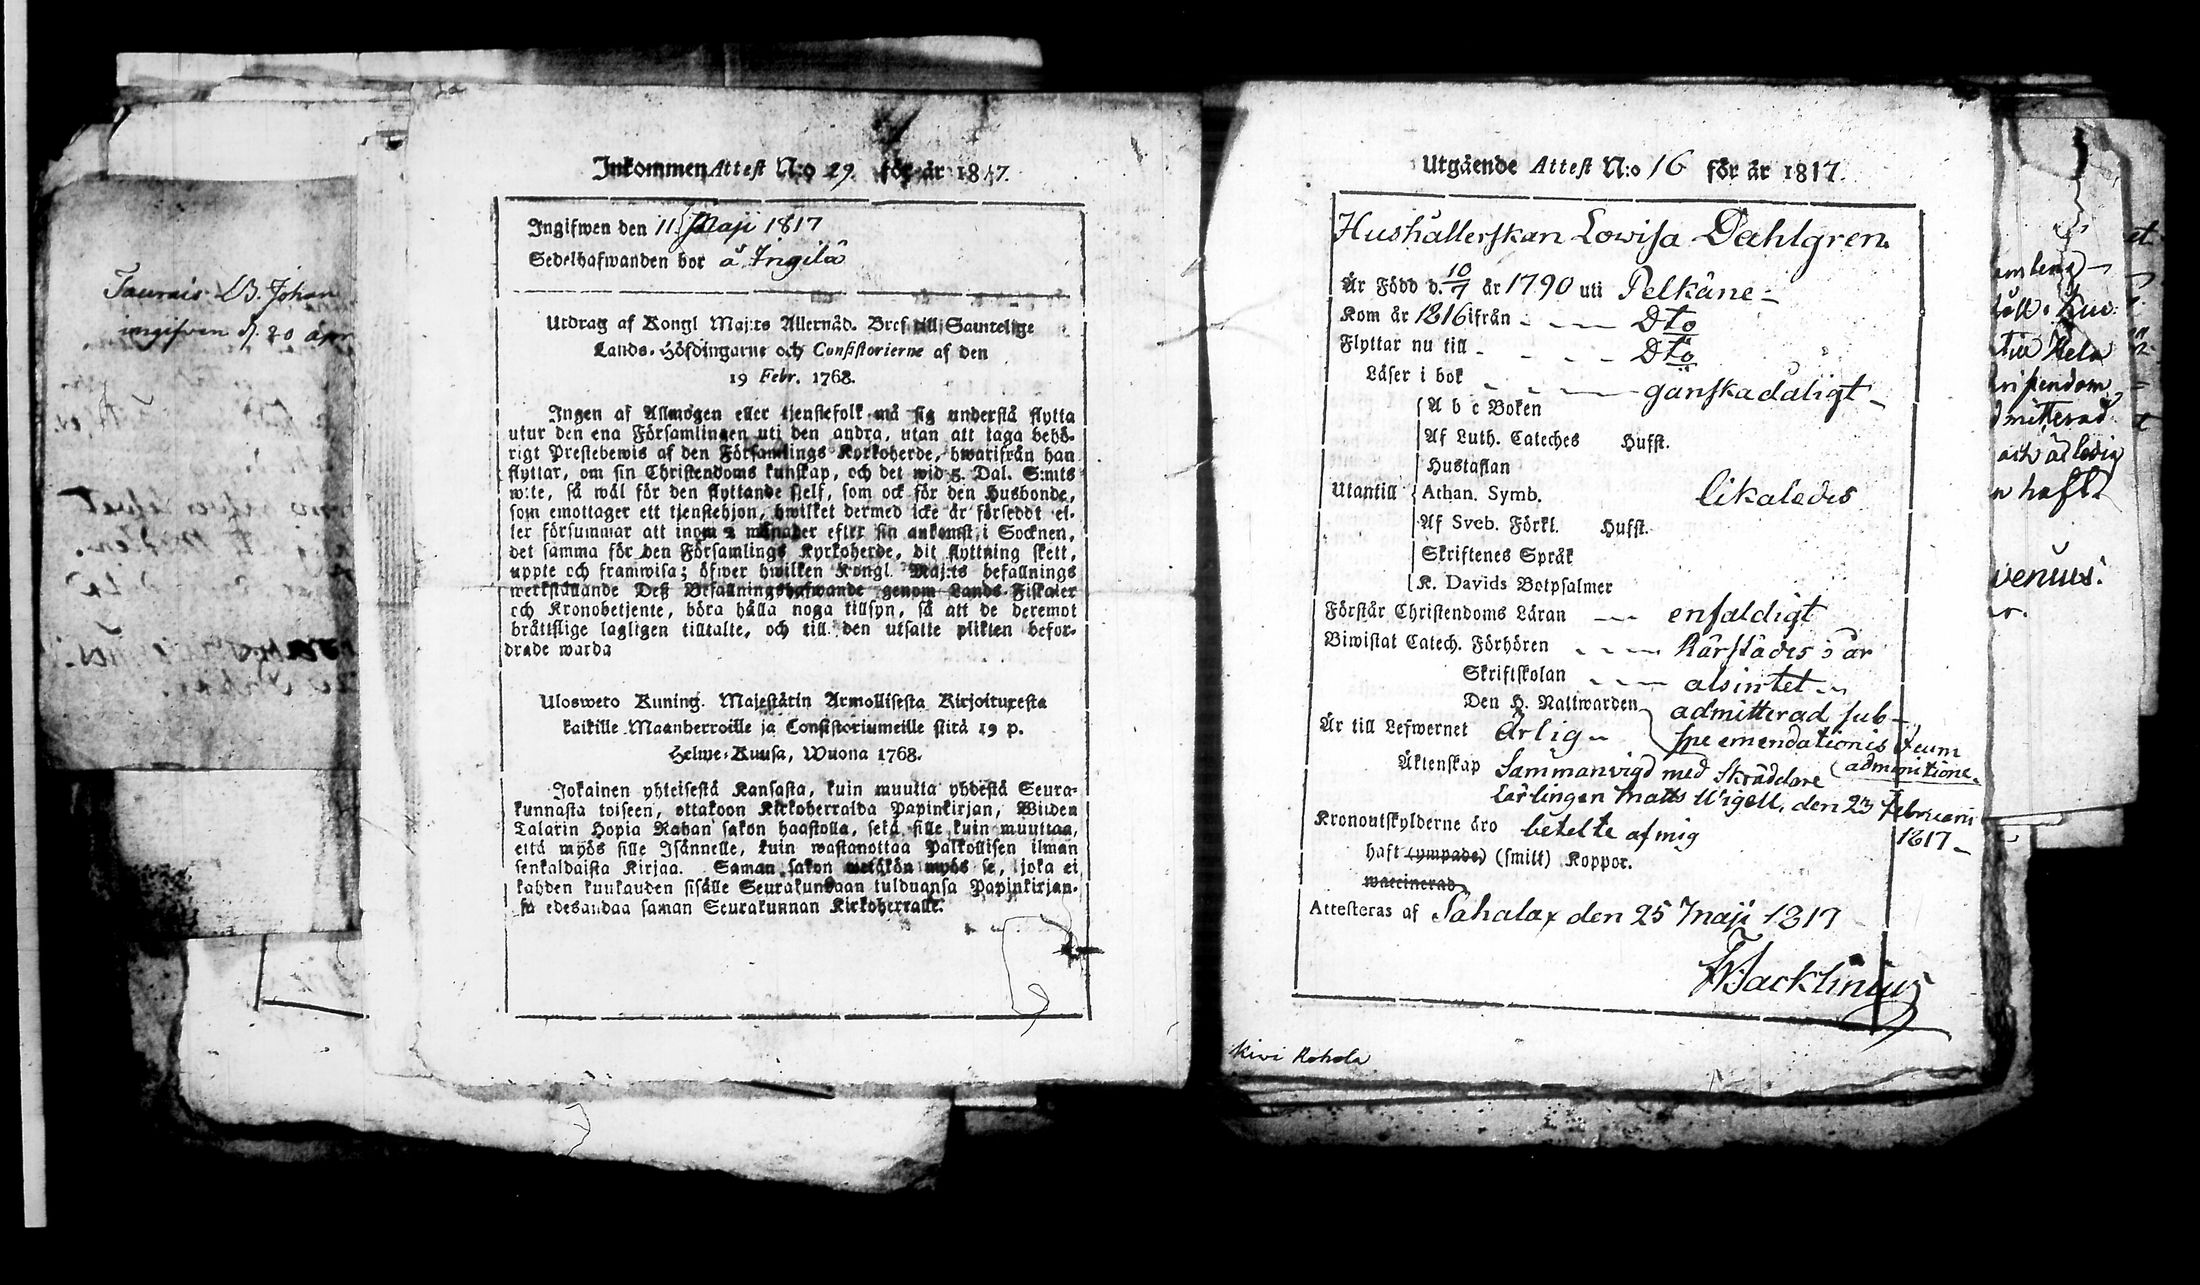 Taurais W. Johan
ingifven d. 20 apr
Inkommen Attest N:o 29. för år 1817.
Ingifwen den 11. Maji 1817
Sedelhafwanden bor å Ingilä
Utdrag af Kongl Maj:ts Allernåd. Bref till Samtelige
Lands-Höfdingarne och Consistorierne af den
19 Febr. 1768.
Ingen af Allmogen eller tjenstefolk må sig understå flytta
utur den ena Församlingen uti den andra, utan att taga behö-
rigt Prestebewis af den Församlings Kyrkoherde, hwarifrån han
flyttar, om sin Christendoms kunskap, och det wid 5. Dal. S:mts
w:te, så wäl för den flyttande sjelf, som ock för den Husbonde,
som emottager ett tjenstehjon, hwilket dermed icke är försedt el-
ler försummar att inom 2 månader efter sin ankomst i Socknen,
det samma för den Församlings Kyrkoherde, dit flyttning skett,
uppte och framwisa; öfwer hwilken Kongl Maj:ts befallnings
werkställande Deß Befallningshafwande genom Lands-Fiskaler
och Kronobetjente, böra hålla noga tillsyn, så att de deremot
bråttslige lagligen tilltalte, och till den utsatte plikten befor-
drade warda
Ulosweto Kuning. Majestätin Armollisesta Kirjoituxesta
kaikille Maanherroille ja Consistoriumeille siitä 19 p.
Helme-Kuusa, Wuona 1768.
Jokainen yhteisestä Kansasta, kuin muutta yhdestä Seura-
kunnasta toiseen, ottakoon Kirkoherralda Papinkirjan, Wiiden
Talarin Hopia Rahan sakon haastolla, sekä sille kuin muuttaa,
että myös sille Isännelle, kuin wastanottaa Palkollisen ilman
senkaldaista Kirjaa. Saman sakon wetäkön myös se, joka ei
kahden kuukauden sisälle Seurakundaan tulduansa Papinkirjan-
sa edesandaa saman Seurakunnan Kirkoherralle.
Utgående Attest N:o 16 för år 1817.
Hushållerskan Lowisa Dahlgren.
Är Född d. 10/7 år 1790 uti Pelkäne
Kom år 1816 ifrån Dto
Flyttar nu till Dto
Läser i bok ganska dåligt
A b c Boken
Af Luth. Cateches Husst.
Hustaflan
Utantill Athan. Symb. likaledes
Af Sveb. Förkl. Husst.
Skriftenes Språk
K. Davids Botpsalmer
Förstår Christendoms Läran enfaldigt
Biwistat Catech. Förhören härstädes i år
Skriftskolan alsintet
Den H. Nattwarden admitterad sub
Är till Lefwernet Ärlig spe emendationis cum
admonitione
Äktenskap Sammanvigd med Skräddare
Lärlingen Matts Wigell, den 23 februarii
1817
Kronoutskylderne äro betelte af mig
haft (ympade) (smitt) Koppor.
waccinerad
Attesteras af Sahalax den 25 Maji 1817
Kivi Rohola